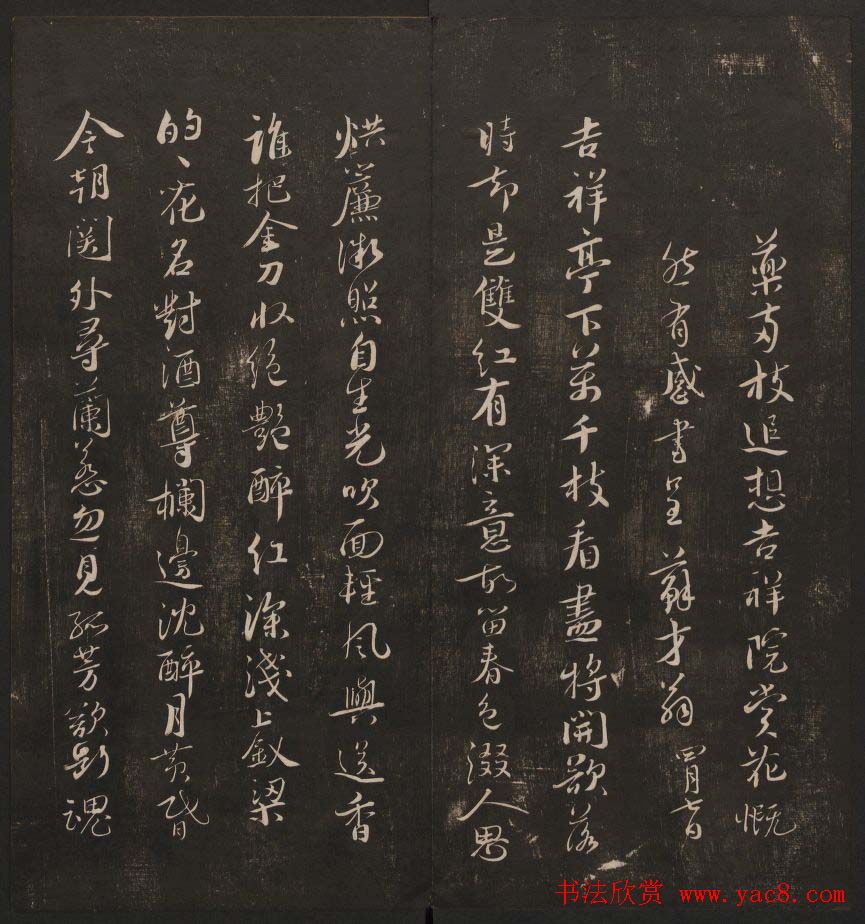 藥兩枝追想吉祥院賞花慨
然有感書呈蘇才翁 四月七日
吉祥亭下萬千枝看盡將開欲落
時却是雙紅有深意故留春色綴人思
烘簾微照自生光吹面輕風與送香
誰把金刀收絕艷醉紅深淺上釵梁
的々花名對酒尊欄邊沈醉月黃昏
今朝関外尋蘭蕊忽見孤芳欲斷魂
书法欣赏 www.yac8.com